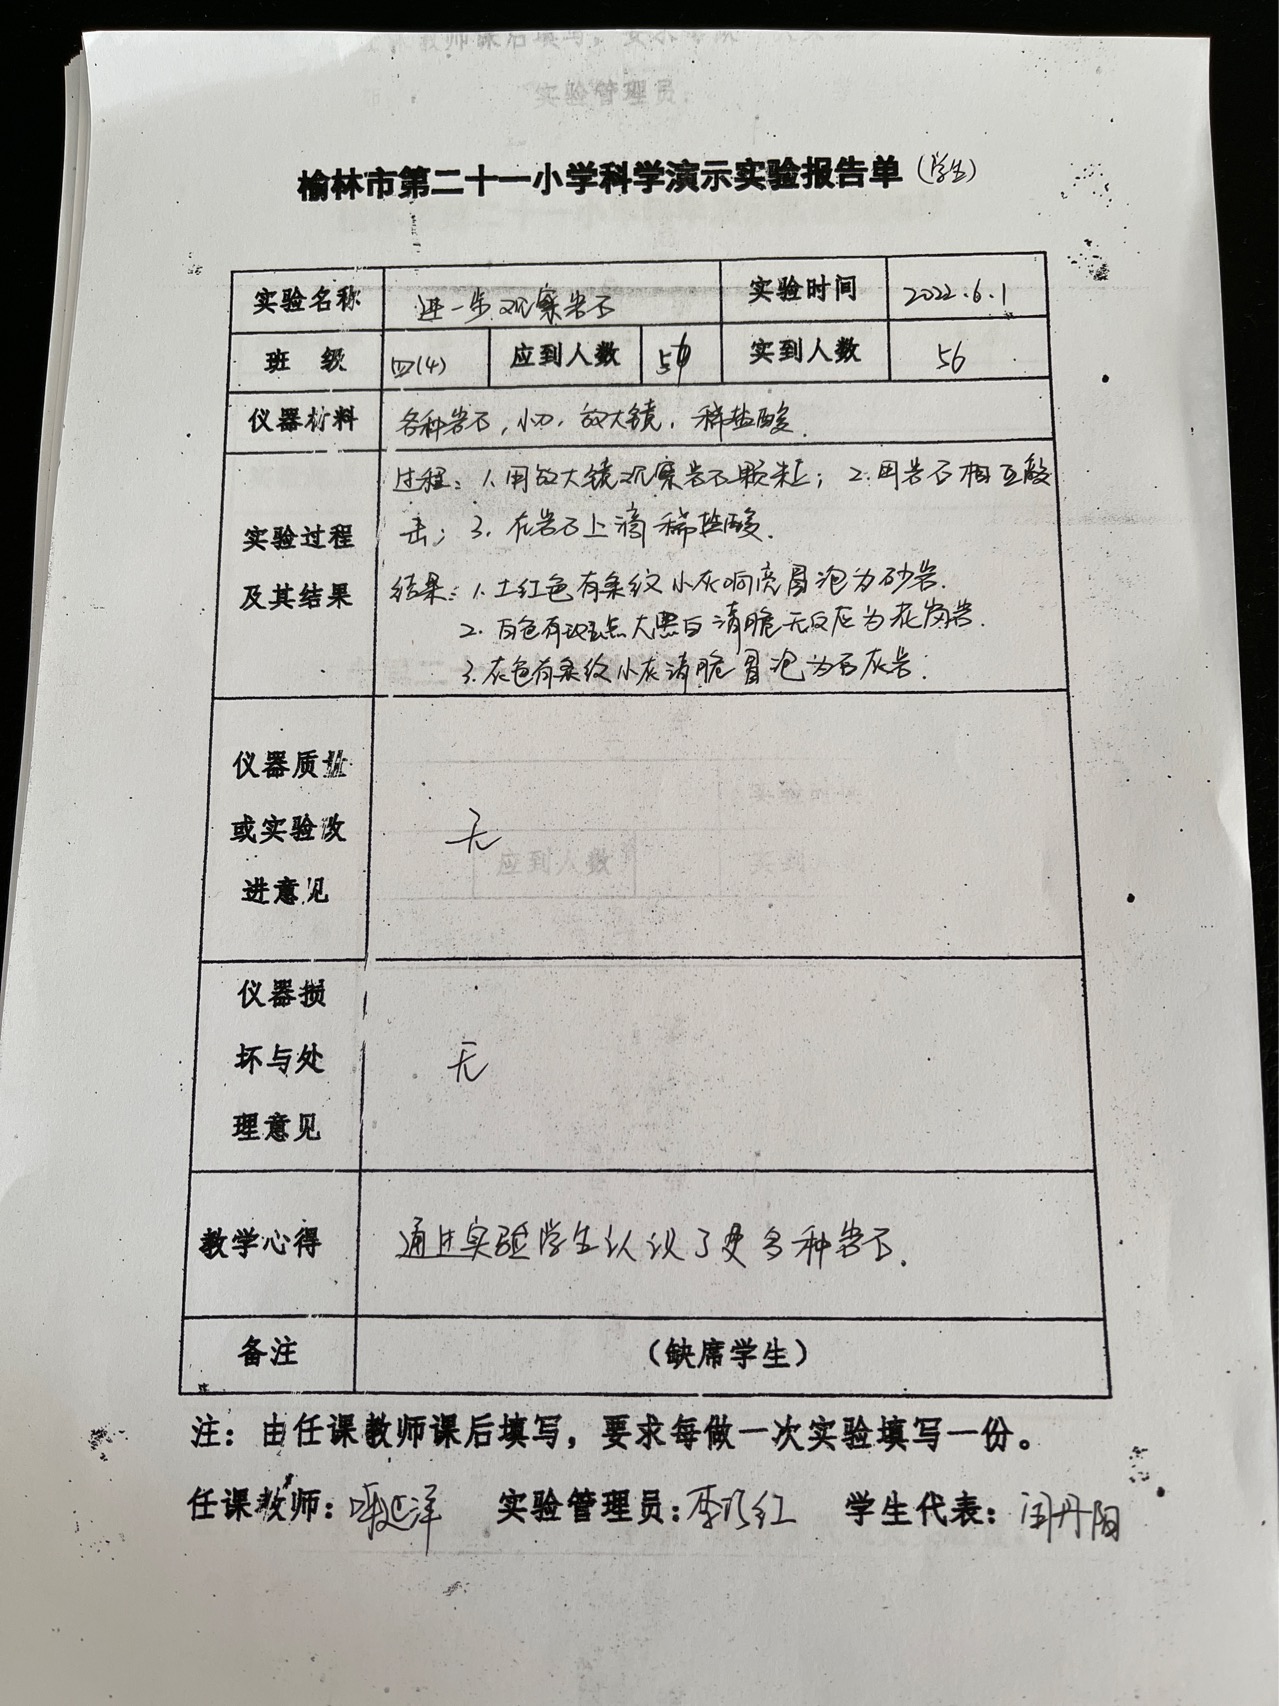 实验管理员:
榆林市第二十一小学科学演示实验报告单(学生)
实验名称 进一步观察岩石 实验时间 2022.6.1
班 级 四(4) 应到人数 实到人数 56
仪器材料 各种岩石,小刀,放大镜,稀盐酸.
实验过程及其结果
过程:1.用放大镜观察岩石颗粒;2.用岩石相互敲
击;3.在岩石上滴稀盐酸.
结果:1.土红色有条纹小灰响亮冒泡为砂岩.
2.白色有斑点大黑白清脆无反应为花岗岩.
3.灰色有条纹小灰清脆冒泡为石灰岩.
仪器质量
或实验改
进意见
无
应到人数
仪器损
坏与处
理意见
无
教学心得 通过实验学生认识了更多种岩石.
备注 (缺席学生)
注:由任课教师课后填写,要求每做一次实验填写一份。
任课教师: 实验管理员: 学生代表:闫丹阳